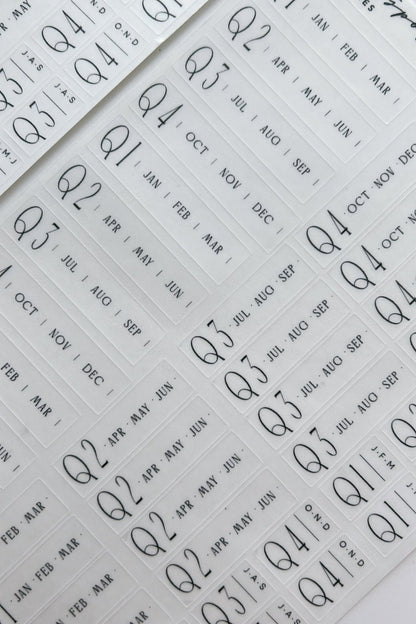 APR · MAY
Q4 | O·N·D
Q4 | O·N·D
Q3 | J·A·S
Q3 | J·A·S
JAN | FEB | MAR |
Q2 | APR | MAY | JUN |
Q3 | JUL | AUG | SEP |
Q4 | OCT | NOV | DEC |
Q1 | JAN | FEB | MAR |
Q2 | APR | MAY | JUN |
Q3 | JUL | AUG | SEP |
| OCT | NOV | DEC |
FEB | MAR |
JUN |
Q4 · OCT · NOV · DEC
Q4 · OCT · NOV
Q4
Q3 · JUL · AUG · SEP ·
Q3 · JUL · AUG · SEP ·
Q3 · JUL · AUG · SEP ·
Q3 · JUL · AUG · SEP ·
Q2 · APR · MAY · JUN ·
Q2 · APR · MAY · JUN ·
Q2 · APR · MAY · JUN ·
Q2 · APR · MAY · JUN ·
FEB · MAR ·
JAN · FEB · MAR ·
JAN · FEB · MAR ·
Q1 | J·F·M
Q1
Q4 | O·N·D
Q4 | O·N·D
Q3 | J·A·S
J·A·S